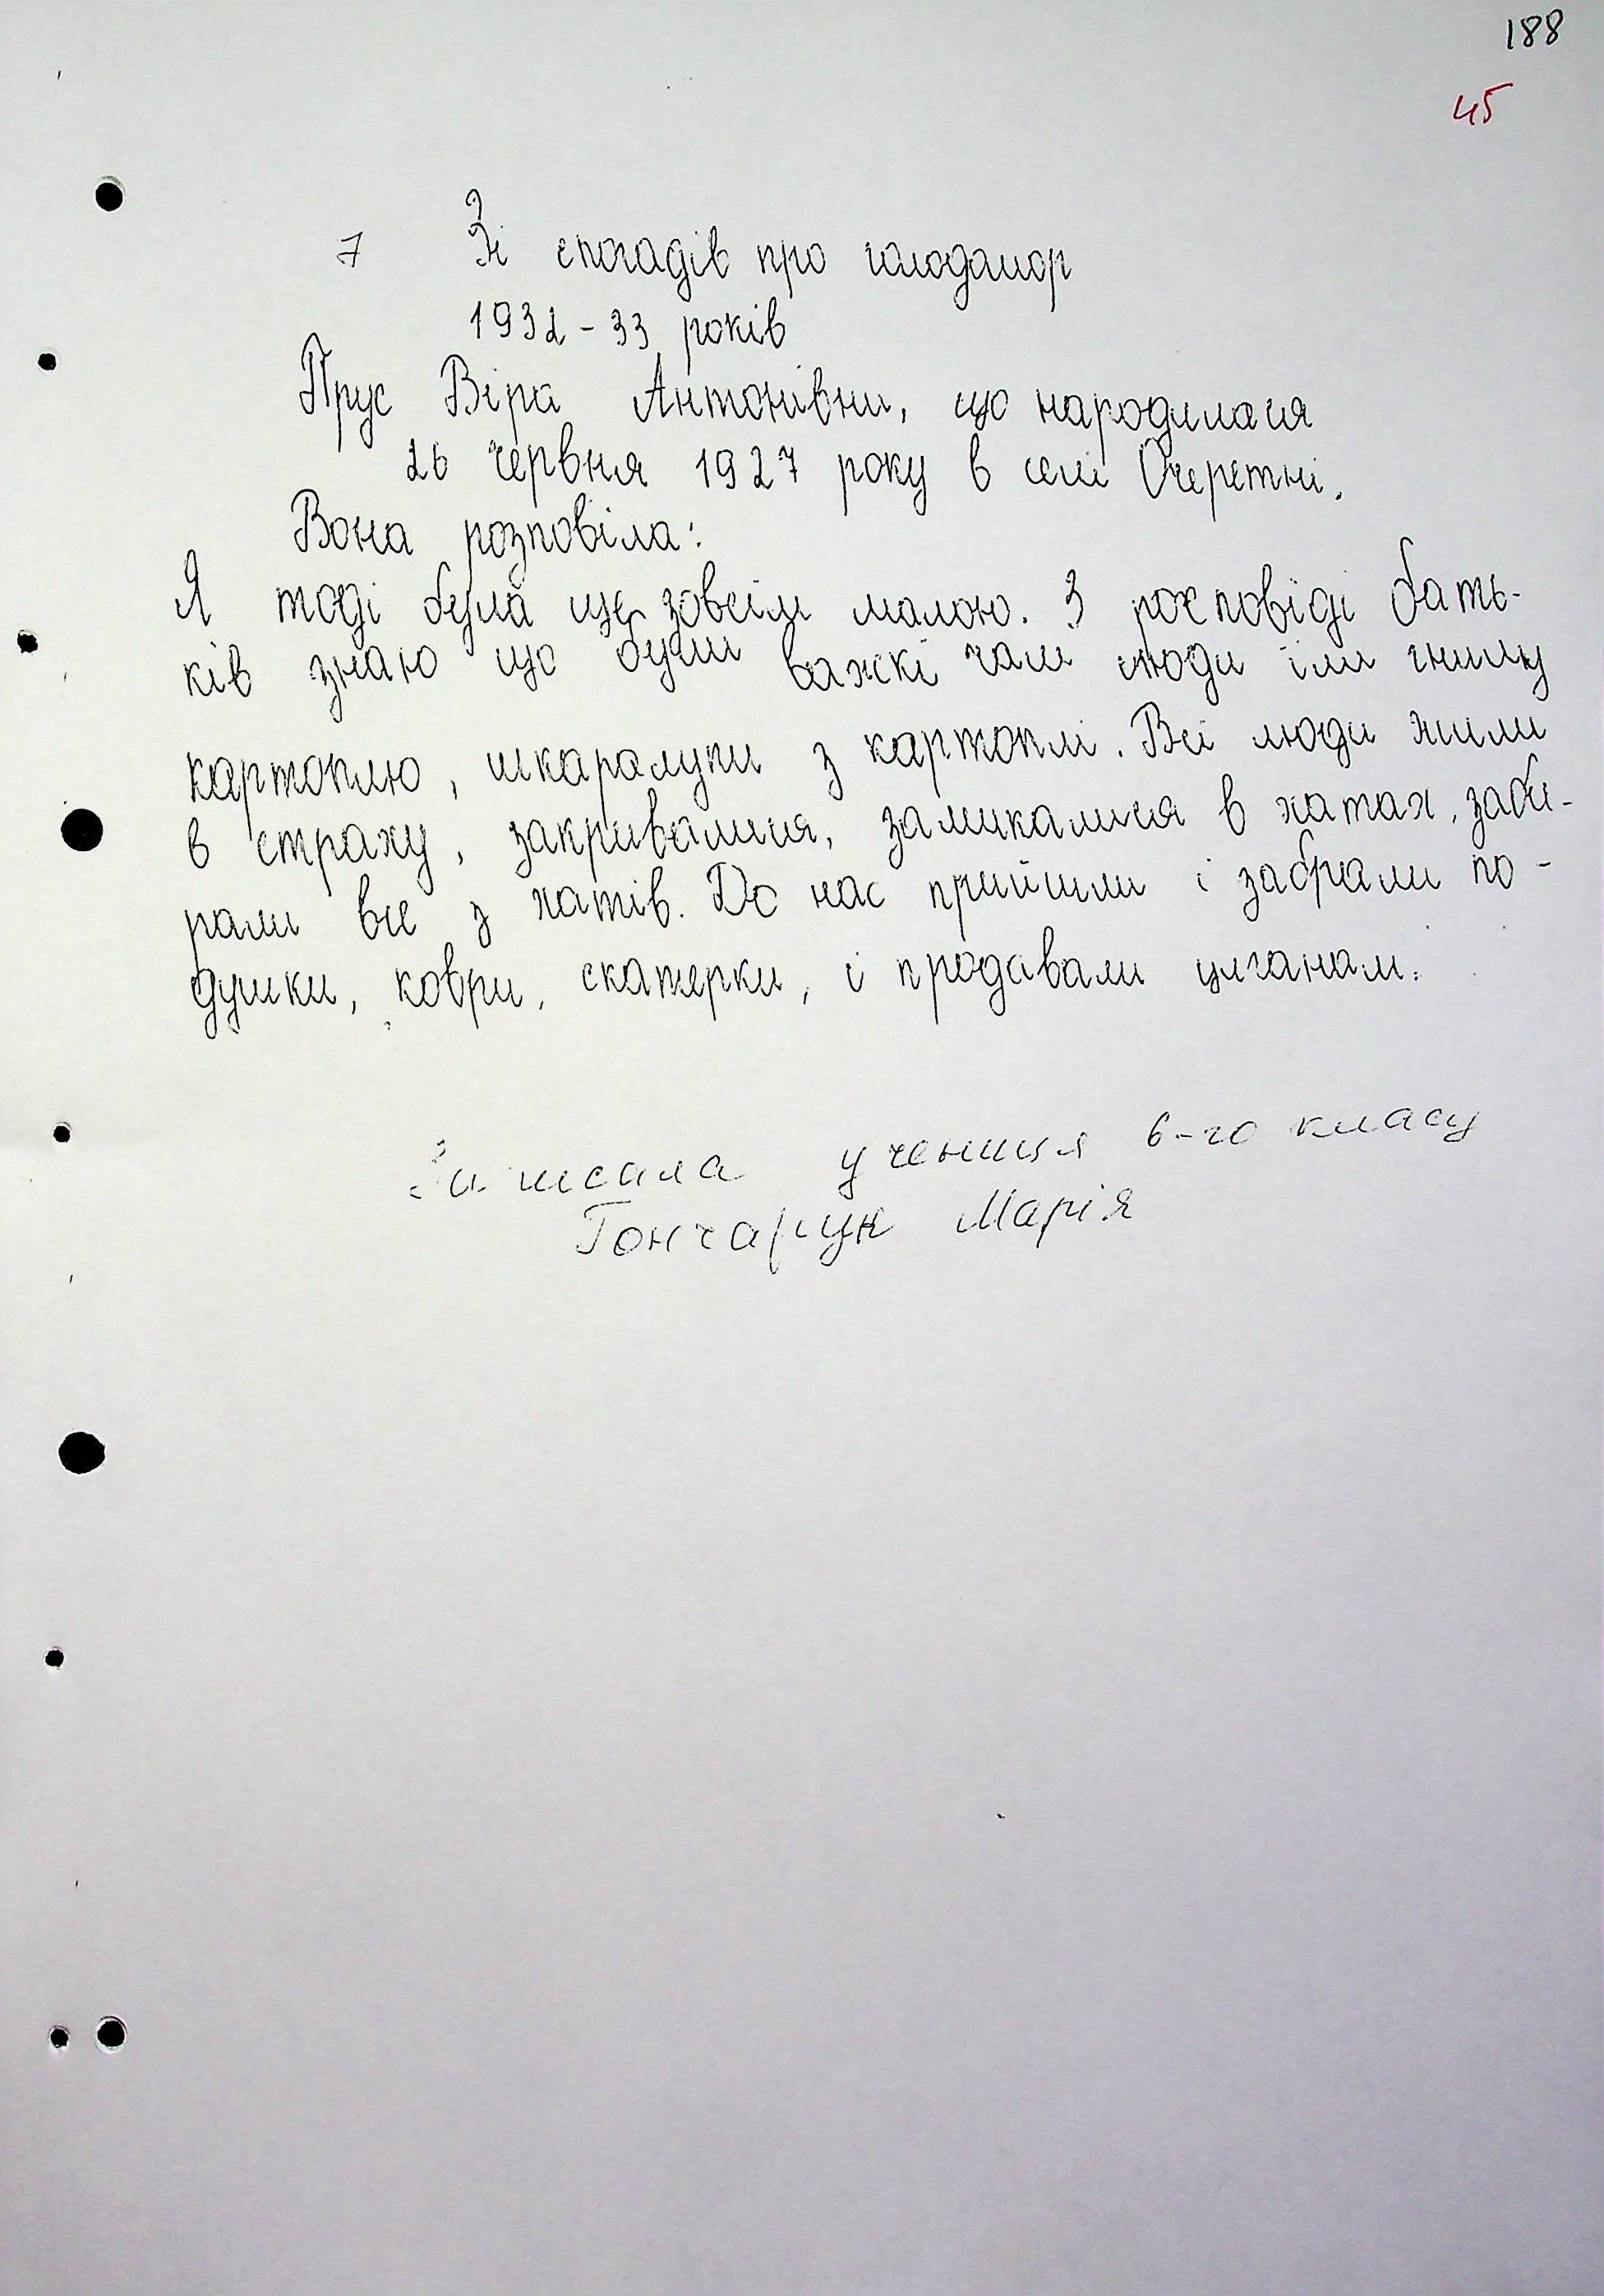 188
45
7 Зі спогадів про голодомор
1932-33 років
Прус Віра Антонівни, що народилася
26 червня 1927 року в селі Очеретні.
Вона розповіла:
Я тоді була ще зовсім малою. З росповіді бать-
ків знаю що були важкі часи люди їли гнилу
картоплю, шкаралупи з картоплі. Всі люди жили
в страху, закривалися, замикалися в хатах, заби-
рали все з хатів. До нас прийшли і забрали по-
душки, коври, скатерки, і продавали циганам.
Записала учениця 6-го класу
Гончарук Марія